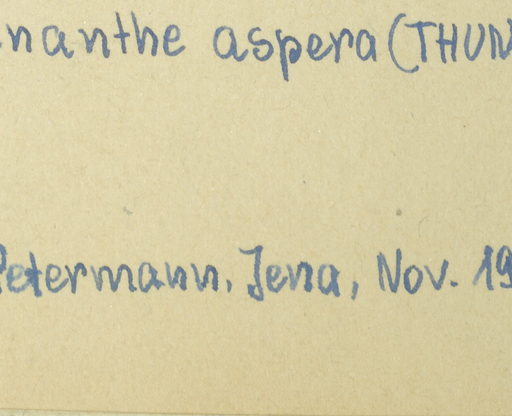 nanthe aspera (THUN
Petermann, Jena, Nov. 19